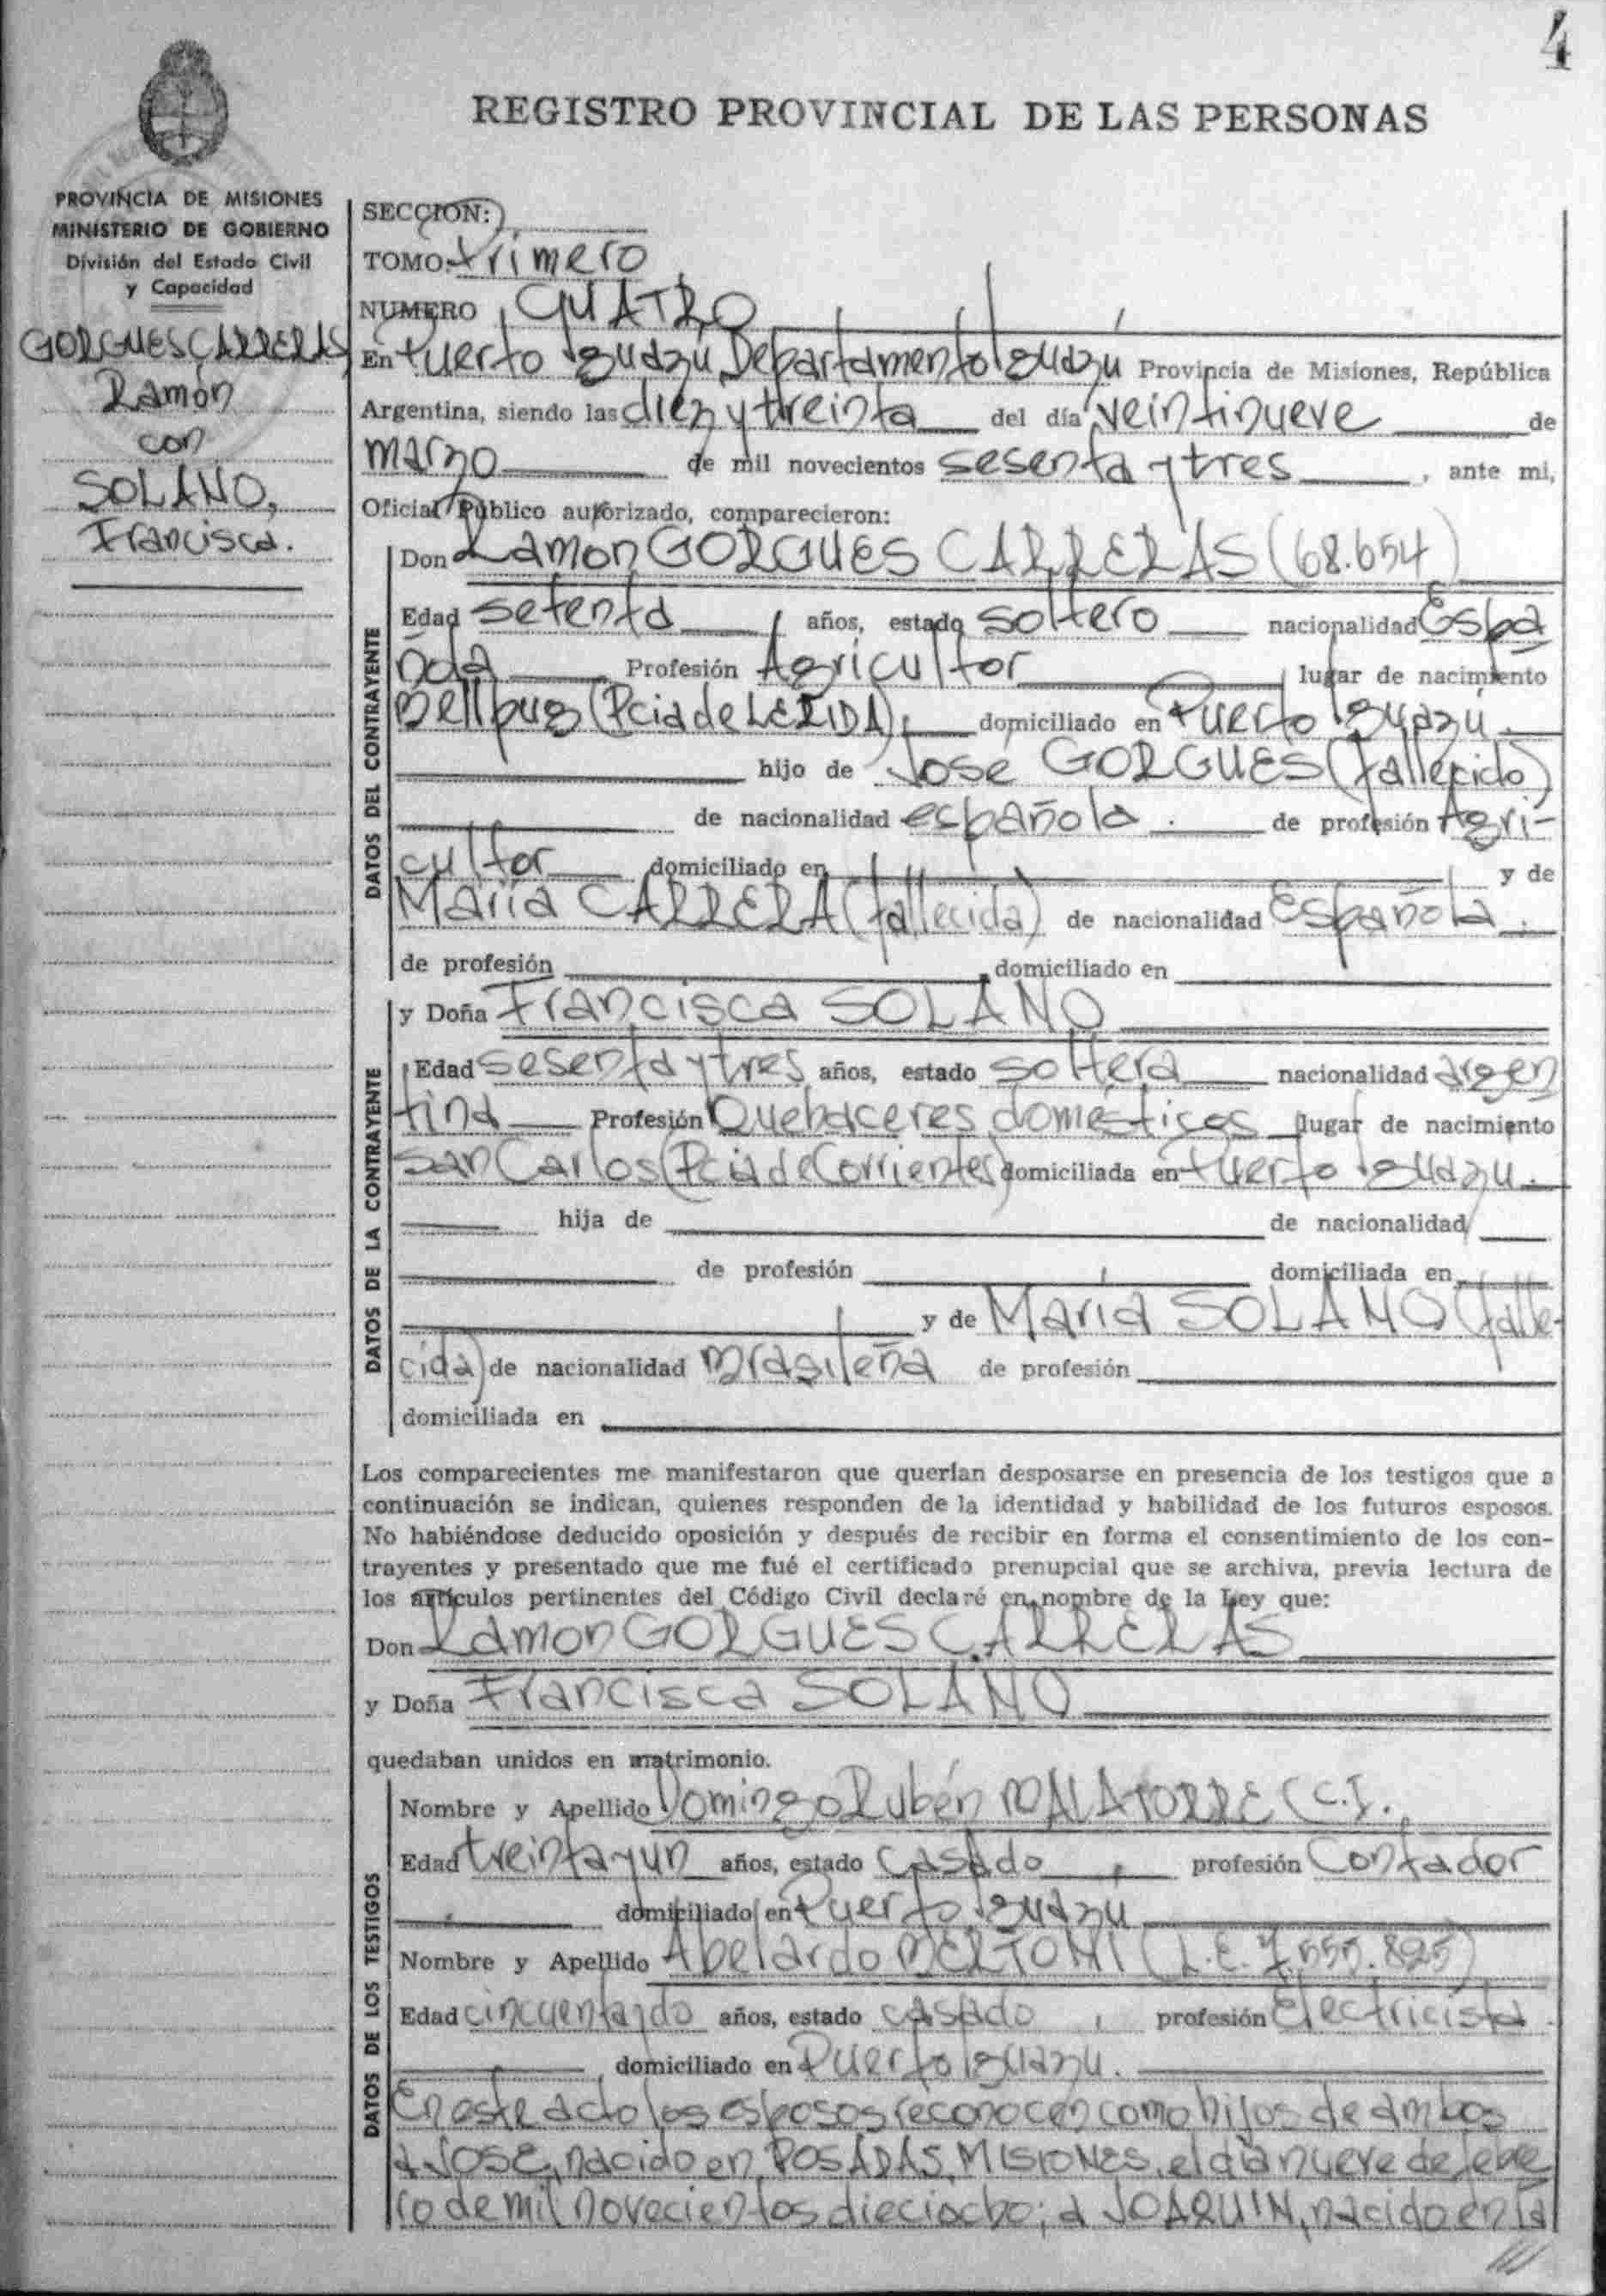 4
REGISTRO PROVINCIAL DE LAS PERSONAS
PROVINCIA DE MISIONES
MINISTERIO DE GOBIERNO
División del Estado Civil
y Capacidad
GORGUES CARRERAS
Ramón
con
SOLANO,
Francisca.
SECCION:
TOMO: Primero
NUMERO CUATRO
En Puerto Iguazú, Departamento Iguazú Provincia de Misiones, República
Argentina, siendo las diez y treinta del día veintinueve de
marzo de mil novecientos sesenta y tres, ante mi,
Oficial Público autorizado, comparecieron:
DATOS DEL CONTRAYENTE
Don Ramon GORGUES CARRERAS (68.654)
Edad setenta años, estado soltero nacionalidad Espa
ñola Profesión Agricultor lugar de nacimiento
Bellpug (Pcia de LERIDA), domiciliado en Puerto Iguazú.
hijo de Jose GORGUES (fallecido)
de nacionalidad española. de profesión Agri-
cultor domiciliado en y de
María CARRERA (fallecida) de nacionalidad Española.
de profesión domiciliado en
DATOS DE LA CONTRAYENTE
y Doña Francisca SOLANO
Edad sesenta y tres años, estado soltera nacionalidad argen
tina Profesión Quehaceres domésticos lugar de nacimiento
San Carlos (Pcia de Corrientes) domiciliada en Puerto Iguazu.
hija de de nacionalidad
de profesión domiciliada en
y de María SOLANO (falle-
cida) de nacionalidad Brasileña de profesión
domiciliada en
Los comparecientes me manifestaron que querían desposarse en presencia de los testigos que a
continuación se indican, quienes responden de la identidad y habilidad de los futuros esposos.
No habiéndose deducido oposición y después de recibir en forma el consentimiento de los con-
trayentes y presentado que me fué el certificado prenupcial que se archiva, previa lectura de
los artículos pertinentes del Código Civil declaré en nombre de la Ley que:
Don Ramon GORGUES CARRERAS
y Doña Francisca SOLANO
quedaban unidos en matrimonio.
DATOS DE LOS TESTIGOS
Nombre y Apellido Domingo Rubén MALATORRE (C.I.
Edad treinta y un años, estado casado, profesión Contador
domiciliado en Puerto Iguazu
Nombre y Apellido Abelardo BERTONI (L.E. 7.555.825)
Edad cincuenta y do años, estado casado, profesión Electricista.
domiciliado en Puerto Iguazu.
En este acto los esposos reconocen como hijos de ambos
a JOSE, nacido en POSADAS, MISIONES, el día nueve de febre
ro de mil novecientos dieciocho; a JOAQUIN, nacido en la